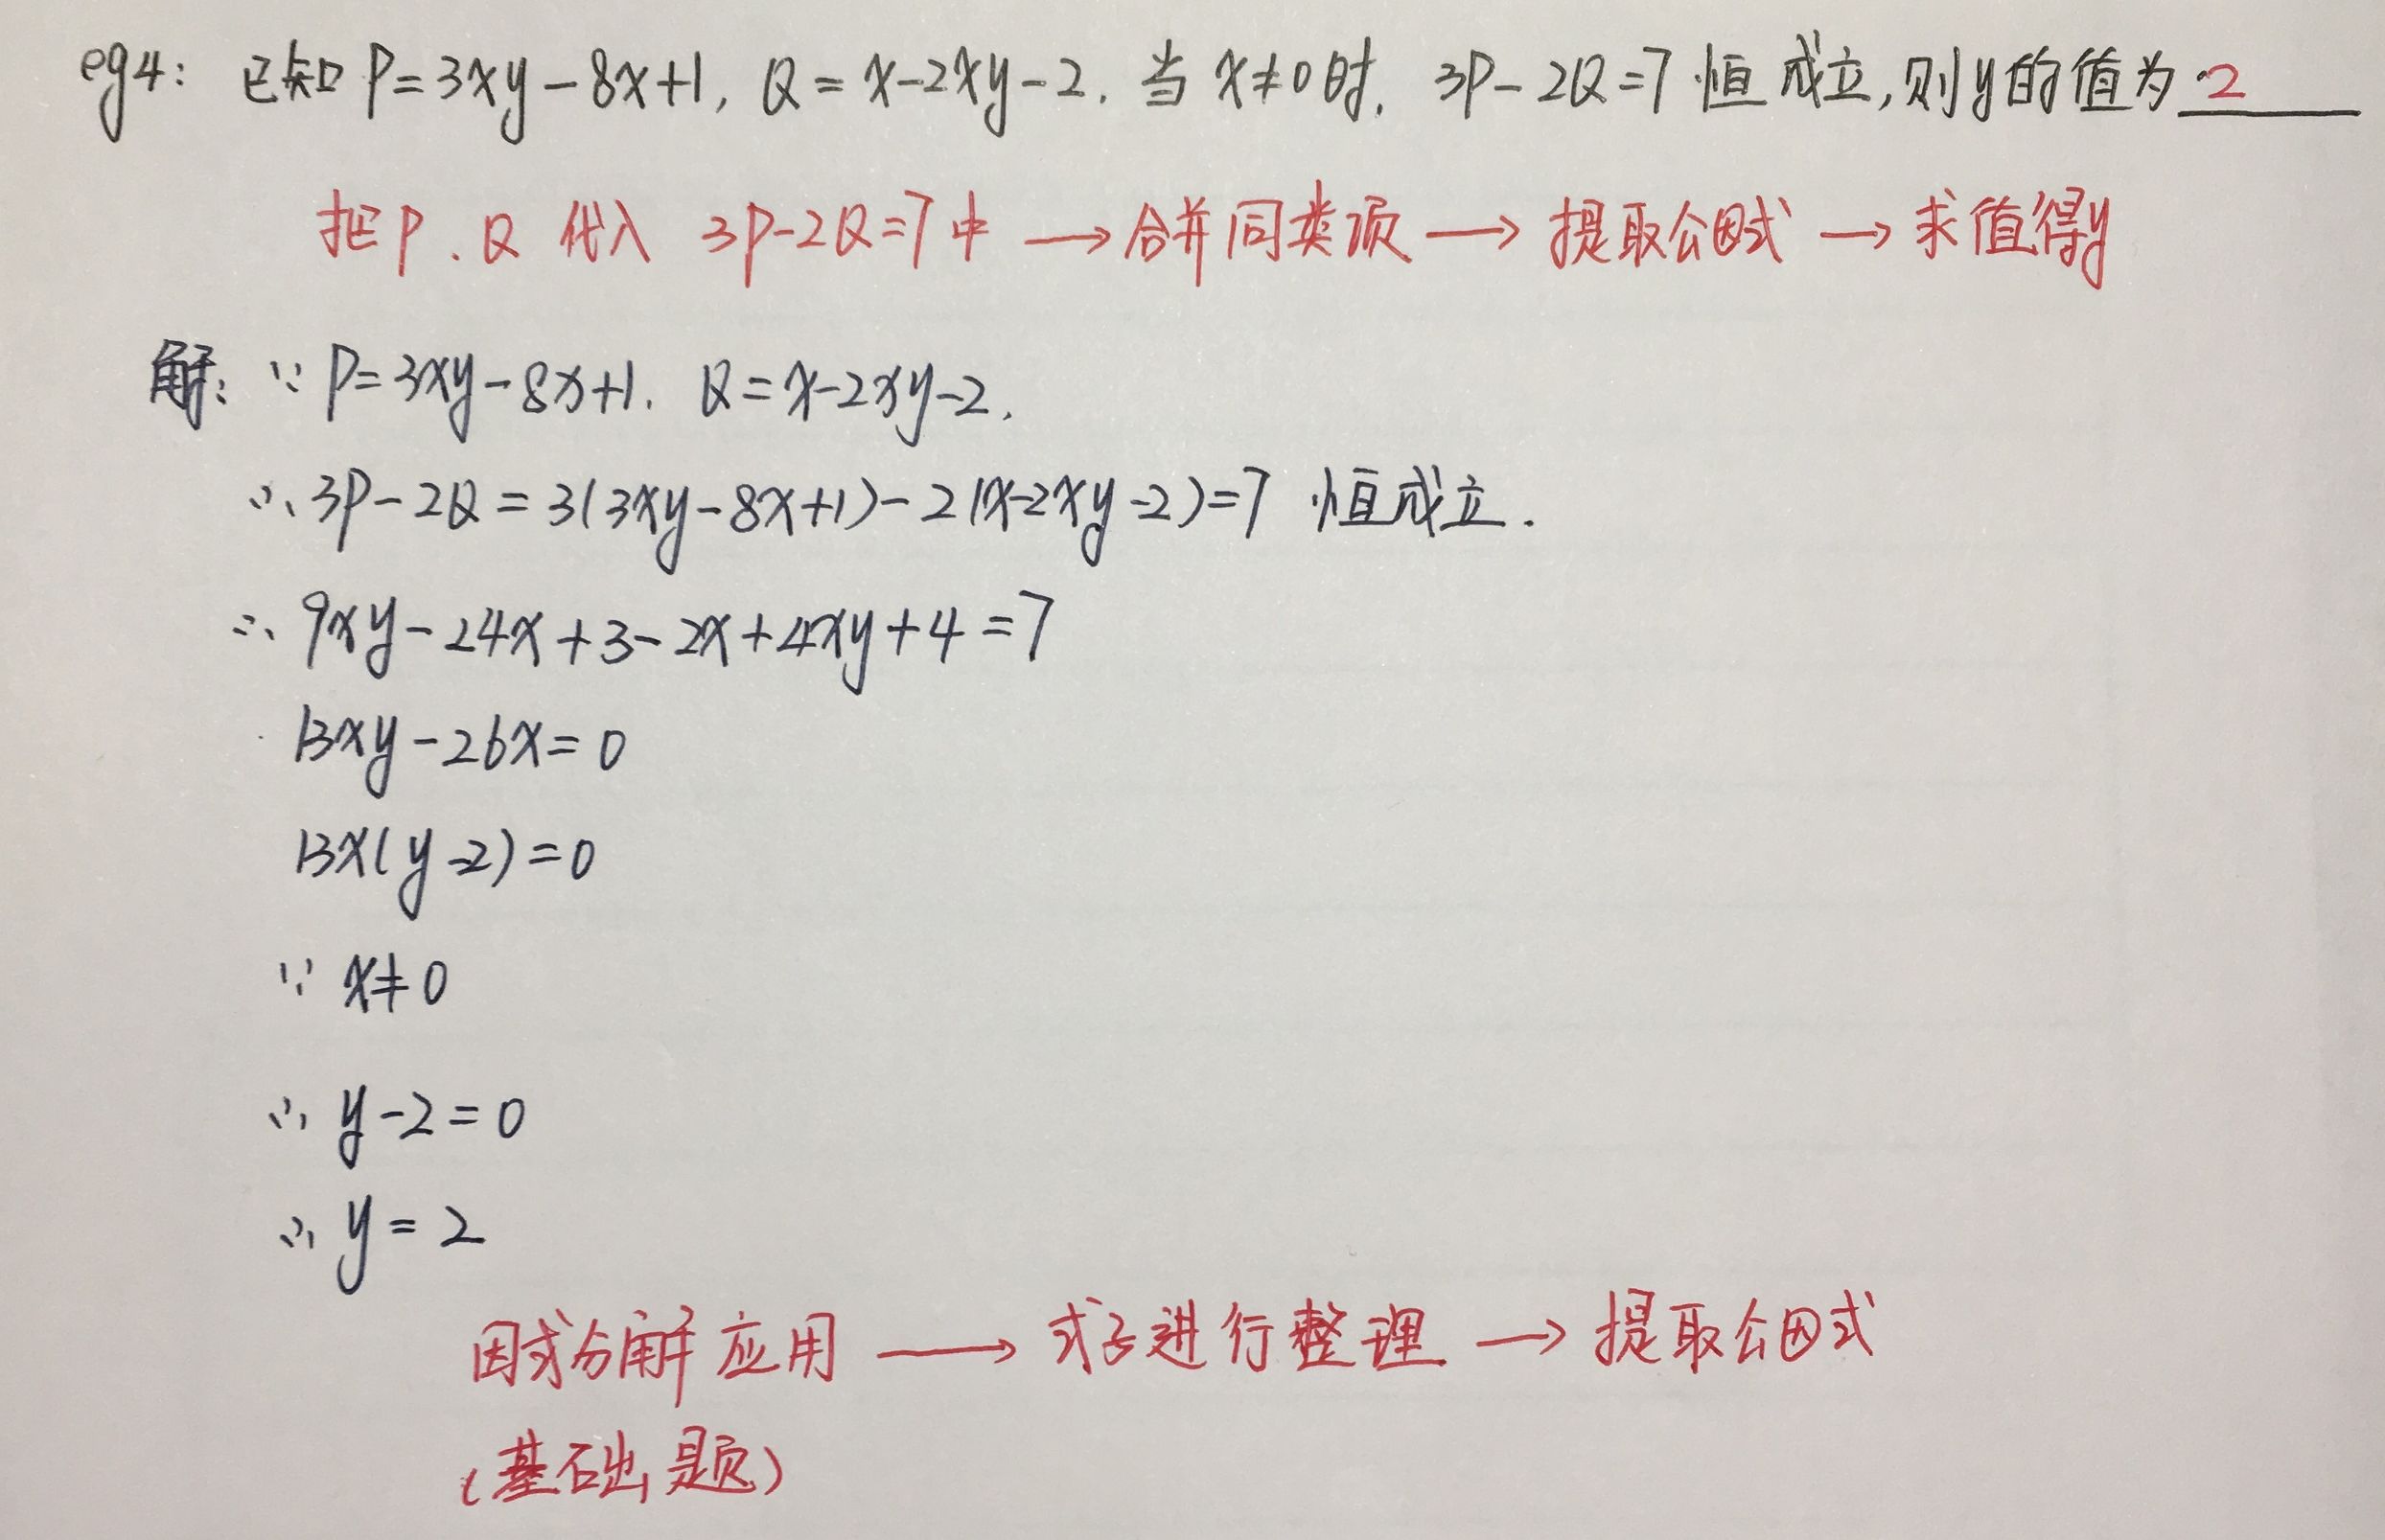 eg4: 已知 P=3xy-8x+1, Q=x-2xy-2. 当 x≠0时, 3P-2Q=7 恒成立,则y的值为 2
把P.Q 代入 3P-2Q=7中 → 合并同类项 → 提取公因式 → 求值得y
解: ∵ P=3xy-8x+1. Q=x-2xy-2.
∴ 3P-2Q=3(3xy-8x+1)-2(x-2xy-2)=7 恒成立.
∴ 9xy-24x+3-2x+4xy+4=7
13xy-26x=0
13x(y-2)=0
∵ x≠0
∴ y-2=0
∴ y=2
因式分解应用 → 式子进行整理 → 提取公因式
(基础题)